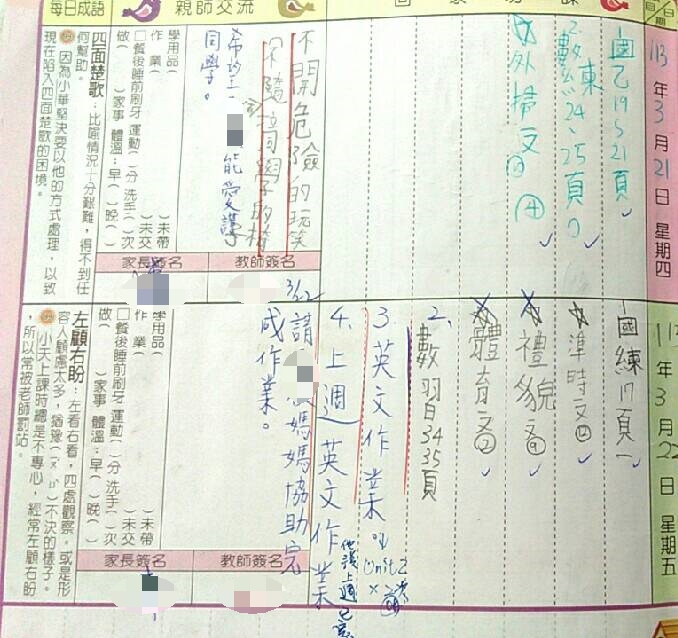 每日成語
親師交流
月/日
113年3月21日 星期四
國乙19、21頁
2.數練24、25頁
外掃文
④
不開危險的玩笑
不隨
同學的椅
希望
能愛護
同學。
學用品( )未帶
作業( )未交
□餐後睡前刷牙 運動( )分 洗手( )次
做( )家事 體溫:早( )晚( )
家長簽名
教師簽名
四面楚歌:比喻情況十分艱難,得不到任
何幫助。
因為小華堅決要以他的方式處理,以致
現在陷入四面楚歌的困境。
年3月22日 星期五
國練17頁
準時文④
禮貌文④
體育文②
2.數習白34
35頁
3.英文作業
Unit2
4.上週英文作業
3/22
請
媽媽協助完
成作業。
學用品( )未帶
作業( )未交
□餐後睡前刷牙 運動( )分 洗手( )次
做( )家事 體溫:早( )晚( )
家長簽名
教師簽名
左顧右盼:左看右看,四處觀察。或是形
容人顧慮太多,猶豫(ㄧㄡˊ ㄩˋ)不決的樣子。
小天上課時總是不專心,經常左顧右盼
,所以常被老師罰站。